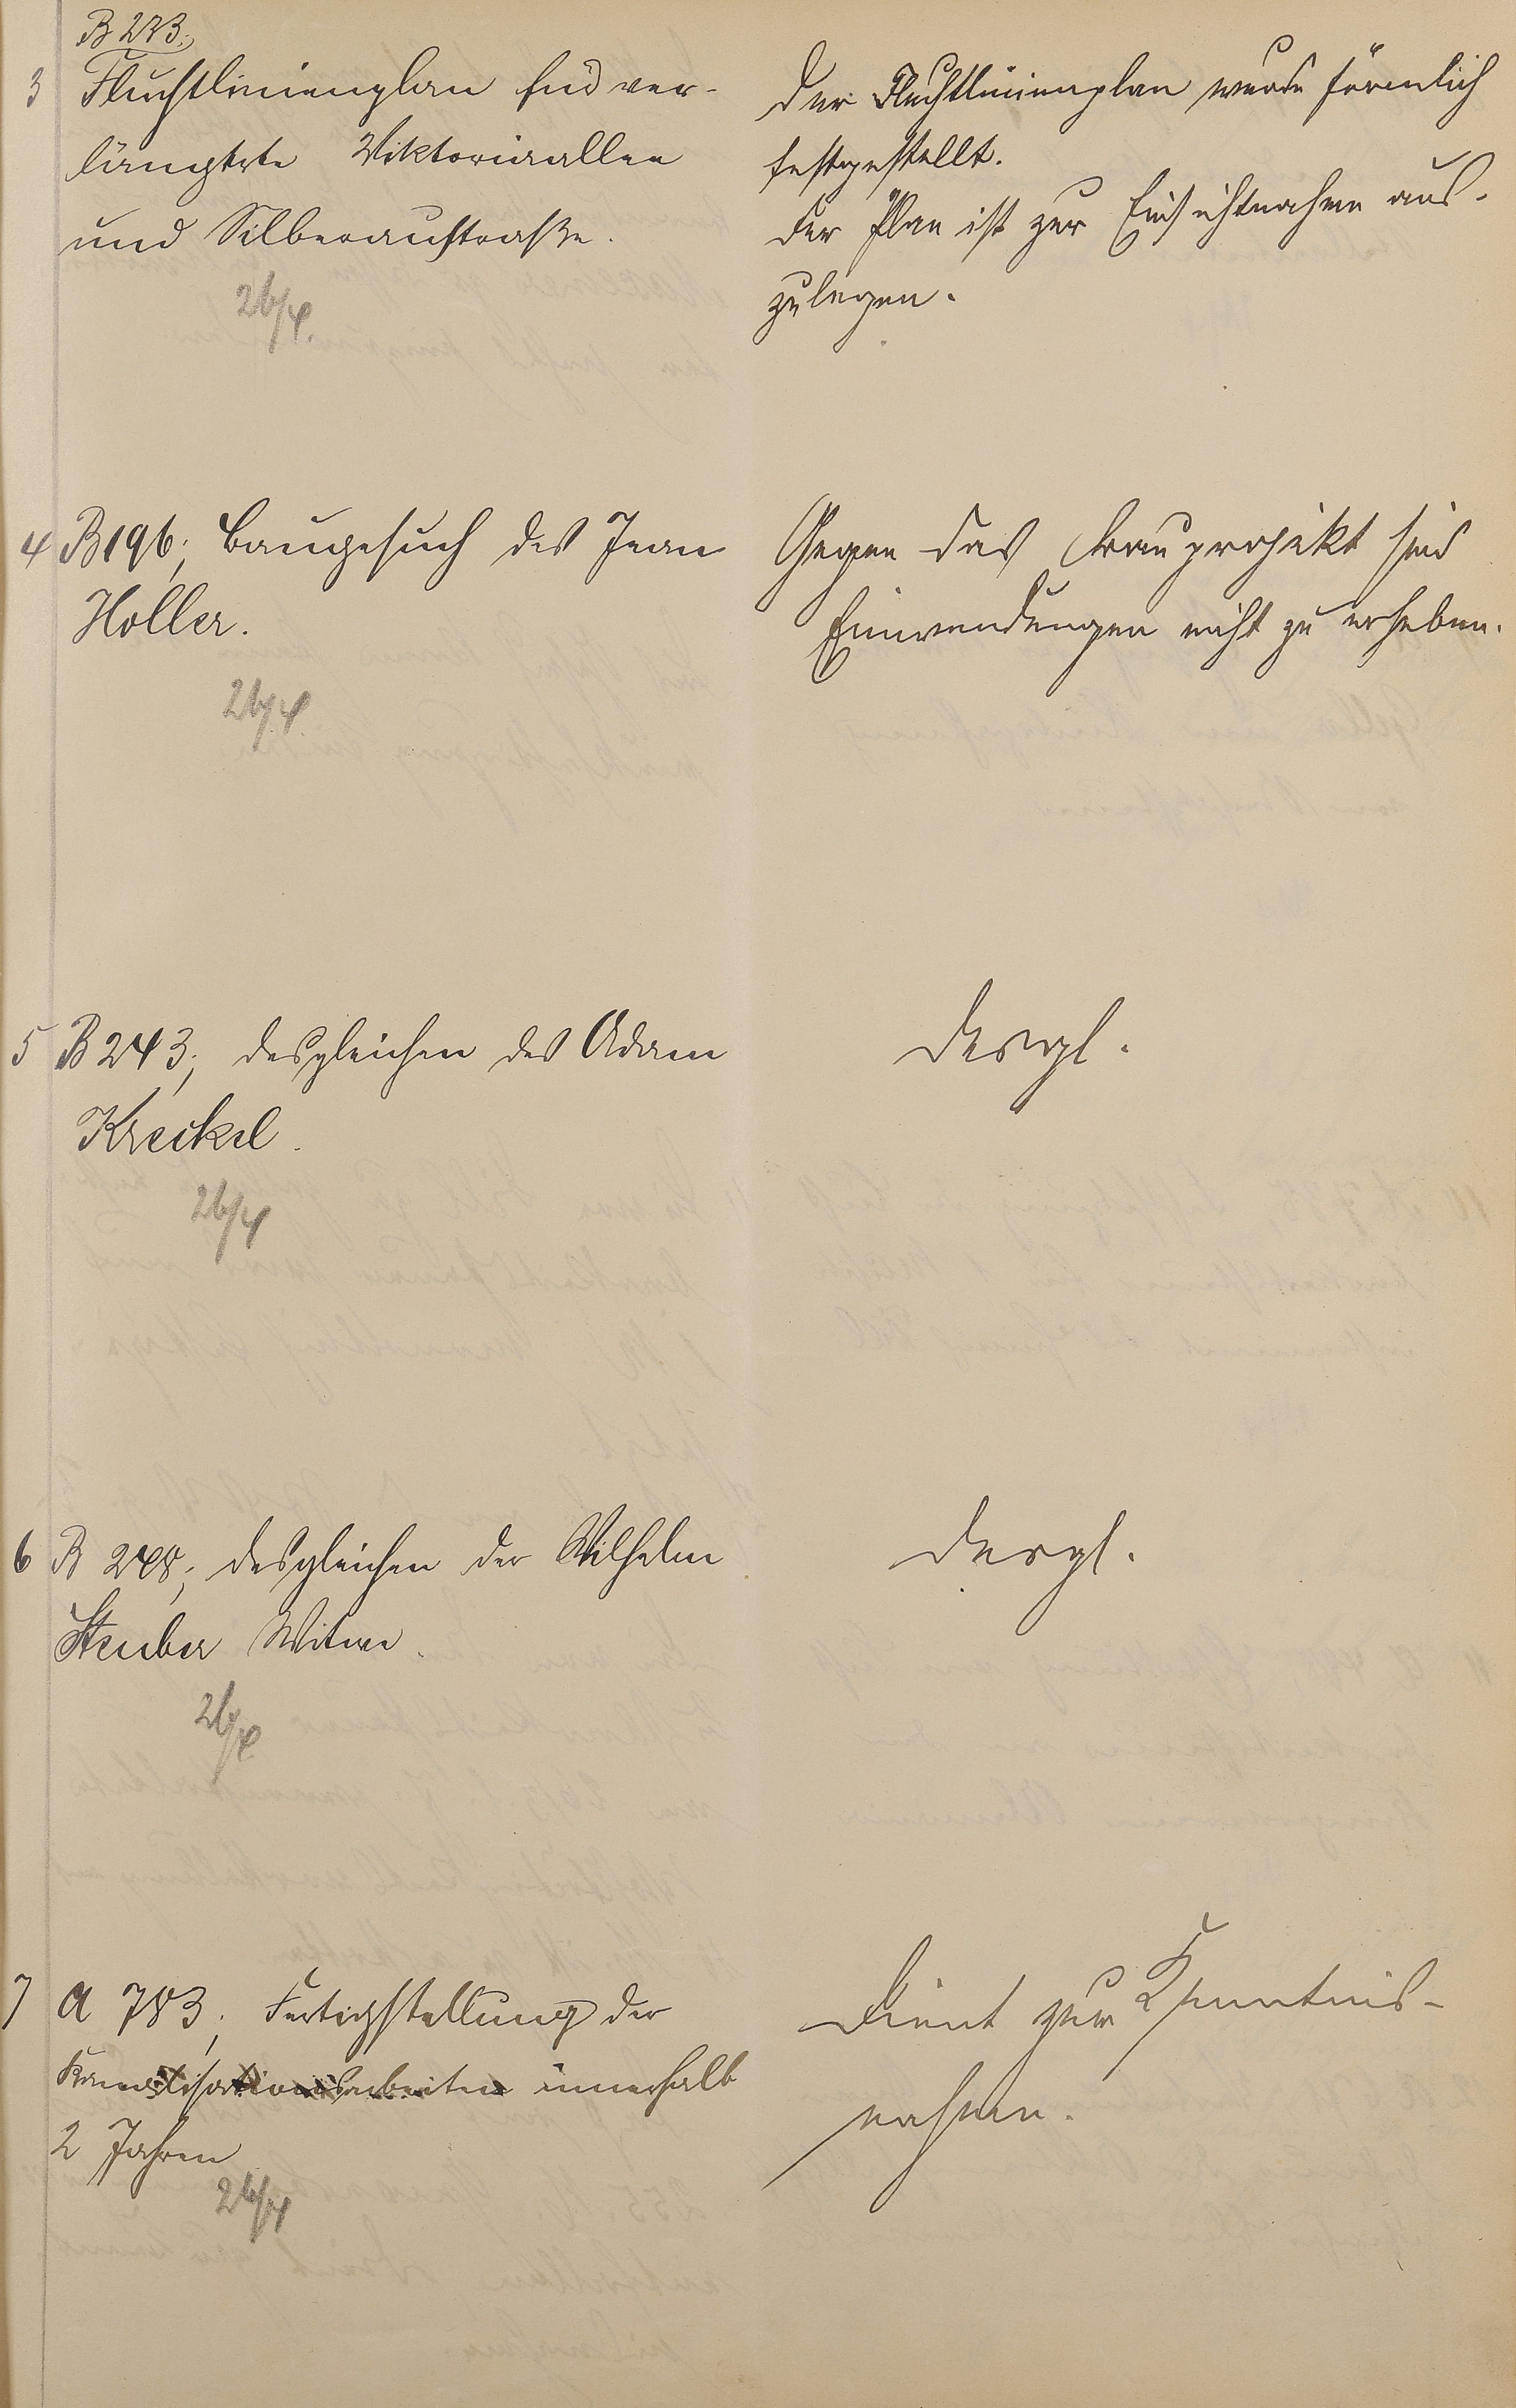 B 273;
3 Fluchtlinienplan für ver-
längerte Viktoriaallee
und Silberaustraße.
26/4.
Der Fluchtlinienplan wurde förmlich
festgestellt.
Der Plan ist zur Einsichtnahme aus-
zulegen.
4 B 196; Baugesuch des Jean
Holler.
26/4.
Gegen das Bauprojekt sind
Einwendungen nicht zu erheben.
5 B 243; desgleichen des Adam
Kreckel.
26/4
Desgl.
6 B 248; desgleichen der Wilhelm
Steuber Witwe.
26/4
Desgl.
7 A 783; Fertigstellung der
Kanalisationsarbeiten innerhalb
2 Jahren
26/4
Dient zur Kenntnis-
nahme.